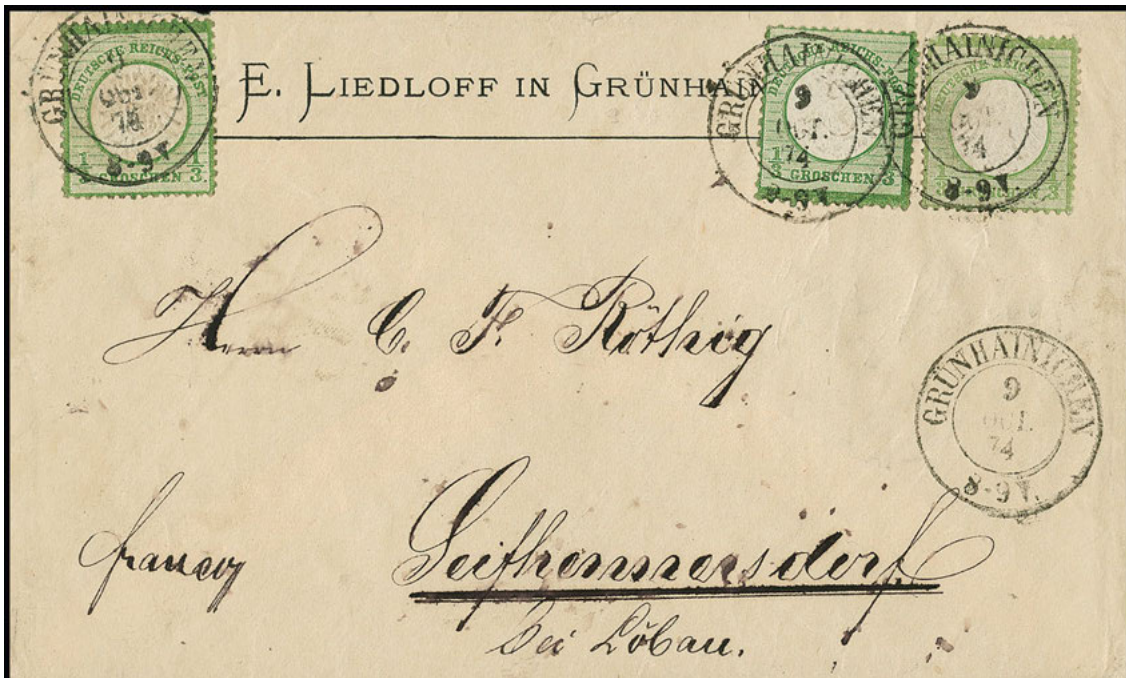 GRÜNHAINICHEN
9
OCT.
74
8-9V.
DEUTSCHE REICHS-POST
1/3 GROSCHEN 1/3
E. LIEDLOFF IN GRÜNHAIN
GRÜNHAINICHEN
9
OCT.
74
8-9V.
DEUTSCHE REICHS-POST
1/3 GROSCHEN 3
GRÜNHAINICHEN
9
74
8-9V.
DEUTSCHE REICHS-POST
Herrn C. F. Röthig
GRÜNHAINICHEN
9
OCT.
74
8-9V.
franco
Seifhennersdorf
bei Löbau.